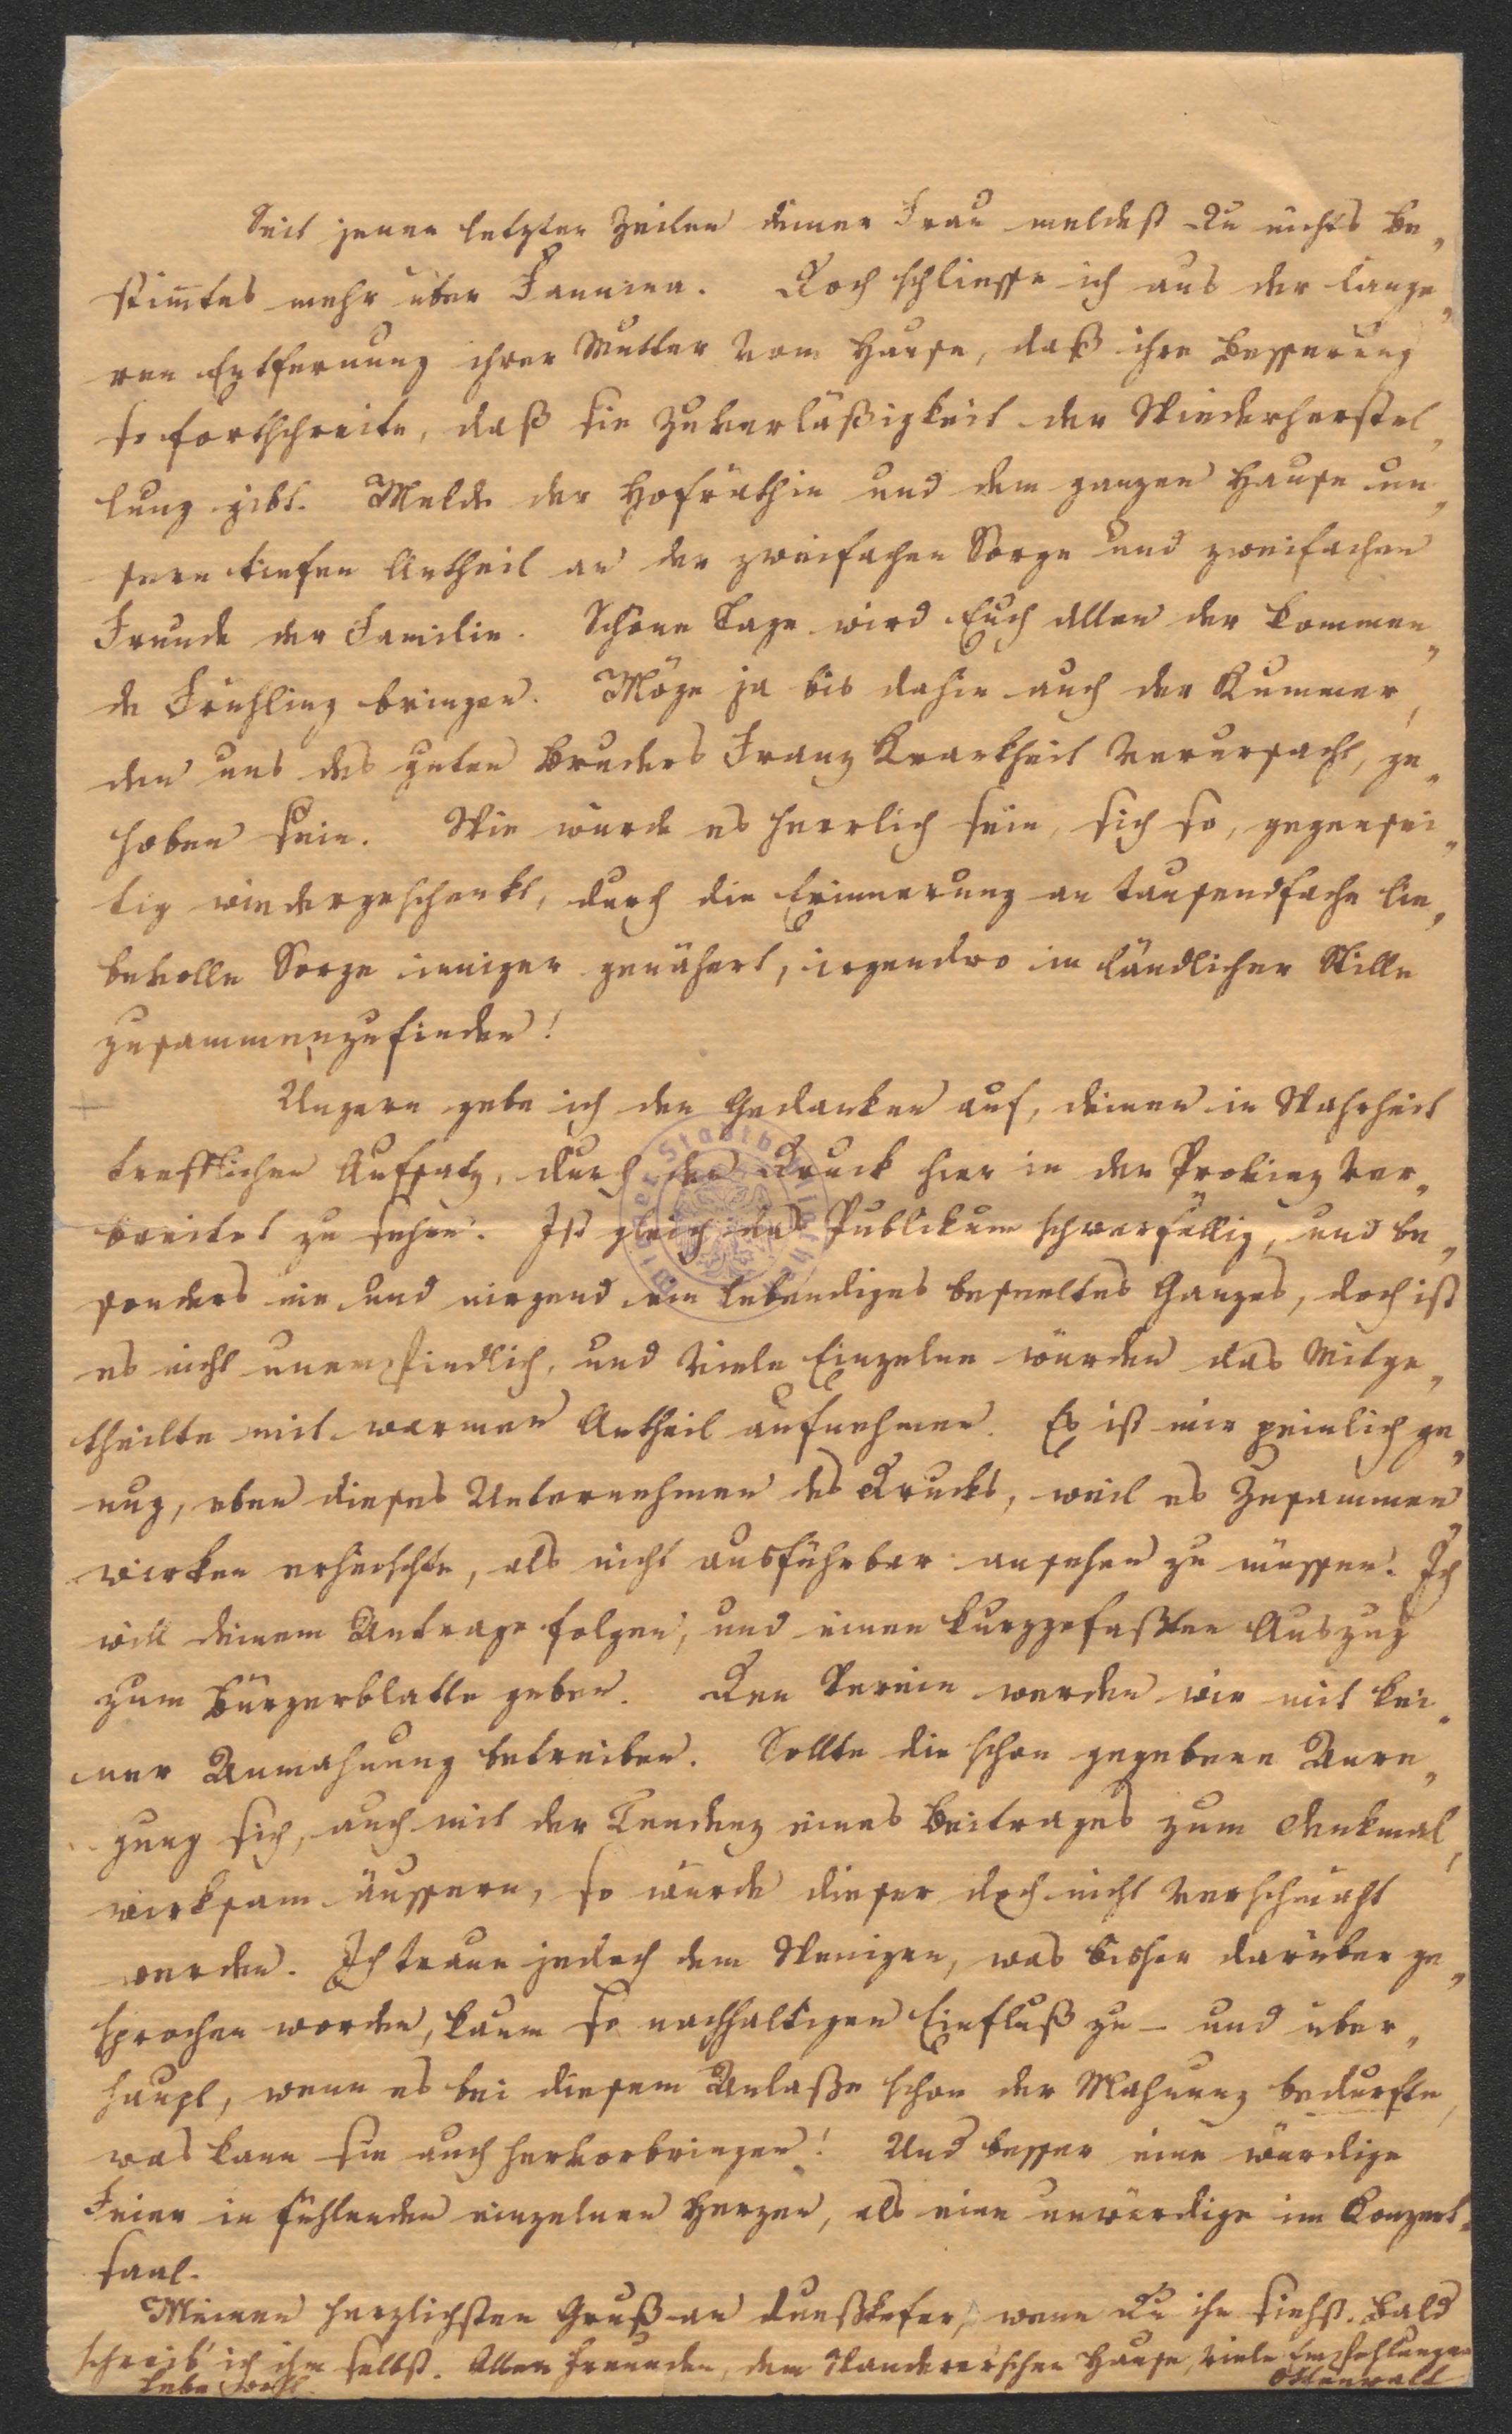 Seit jenen letzten Zeilen deiner Frau meldest Du nichts be„
stim̅tes mehr über Fannien. Doch schliesse ich aus der länge„
ren Entfernung ihrer Mutter vom Hause, daß ihre Besserung
so fortschreite, daß sie Zuverläßigkeit der Wiederherstel„
lung gibt. Melde der Hofräthin und dem ganzen Hause un„
sern tiefen Antheil an der zweifachen Sorge und zweifachen
Freude der Familie. Schöne Tage wird Euch allen der kommen„
de Frühling bringen. Möge ja bis dahin auch der Kummer,
den uns des guten Bruders Franz Krankheit verursacht, ge„
hoben sein. Wie würde es herrlich sein, sich so, gegensei„
tig wiedergeschenkt, durch die Erinnerung an tausendfache lie„
bevolle Sorge inniger genähert, irgendwo in ländlicher Stille
zusammenzufinden!
Ungern gebe ich den Gedanken auf, deinen in Wahrheit
trefflichen Aufsatz, durch den Druck hier in der Provinz ver„
breitet zu sehen. Ist gleich das Publikum schwerfällig, und be„
sonders nie und nirgend ein lebendiges beseeltes Ganzes, doch ist
es nicht unempfindlich, und viele Einzelne würden das Mitge„
theilte mit warmen Antheil aufnehmen. Es ist mir peinlich ge„
nug, eben dieses Unternehmen des Drucks, weil es Zusammen„
wirken erheischte, als nicht ausführbar ansehen zu müssen. Ich
will deinem Antrage folgen, und einen kurzgefaßten Auszug
zum Bürgerblatte geben. Den Verein werden wir mit kei„
ner Anmahnung betreiben. Sollte die schon gegebene Anre„
gung sich, auch mit der Tendenz eines Beitrages zum Denkmal,
wirksam äussern, so würde dieser doch nicht verschmäht
werden. Ich traue jedoch dem Wenigen, was bisher darüber ge„
sprochen worden, kaum so nachhaltigen Einfluß zu – und über„
haupt, wenn es bei diesem Anlaße schon der Mahnung bedurfte,
was kann sie auch hervorbringen! Und besser eine würdige
Feier in fühlenden einzelnen Herzen, als eine unwürdige im Konzert„
saal.
Meinen herzlichsten Gruß an wenn Du ihn siehst. Bald
schreib' ich ihm selbst. Allen Freunden, dem Hause, viele Empfehlungen
Lebe wohl.
Ottenwalt
Wiener Stadtbibliothek